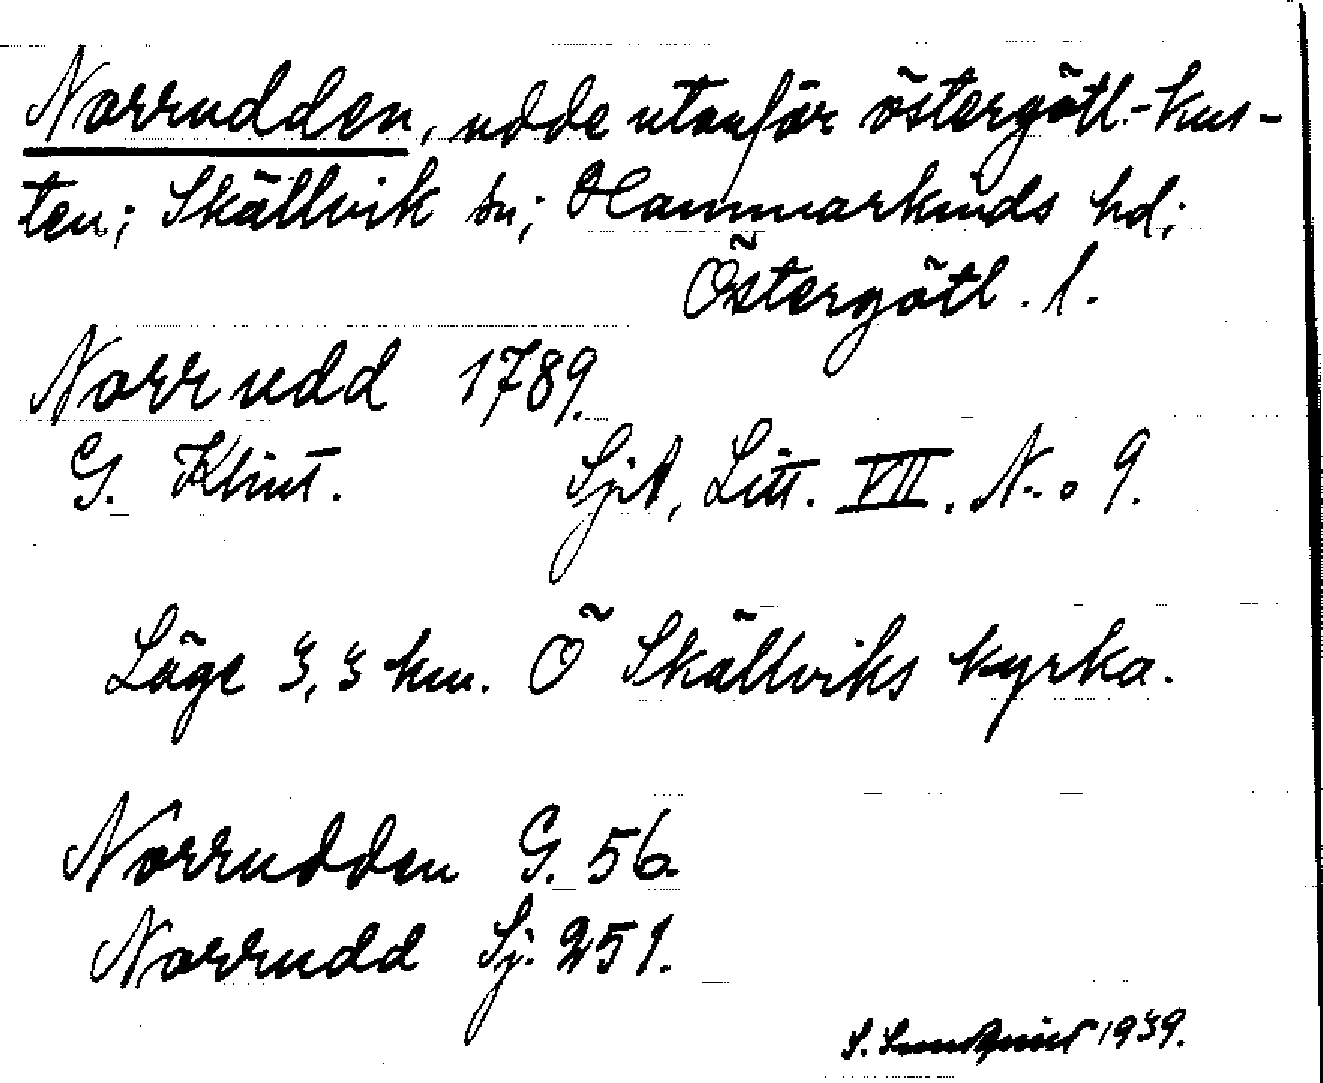 Norrudden, udde utanför östergötl.-kus-
ten; Skällvik sn; Hammarkinds hd;
Östergötl. l.
Norrudd 1789.
G. Klint. SjA, Litt. VII. N:o 9.
Läge 3,3 km. Ö Skällviks kyrka.
Norrudden G. 56.
Norrudd Sj. 251.
S. Sundquist 1939.